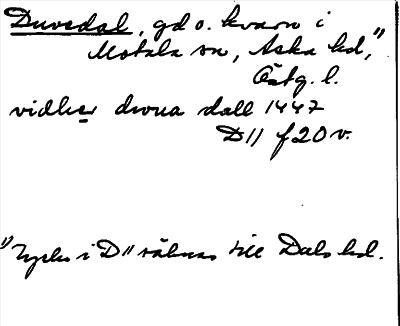 Duvedal, gd o. kvarn i
Motala sn, Aska hd,¹⁾
Östg. l.
vidher dwua dall 1447
D11 f20 v.
¹⁾ Tycks i D11 räknas till Dals hd.